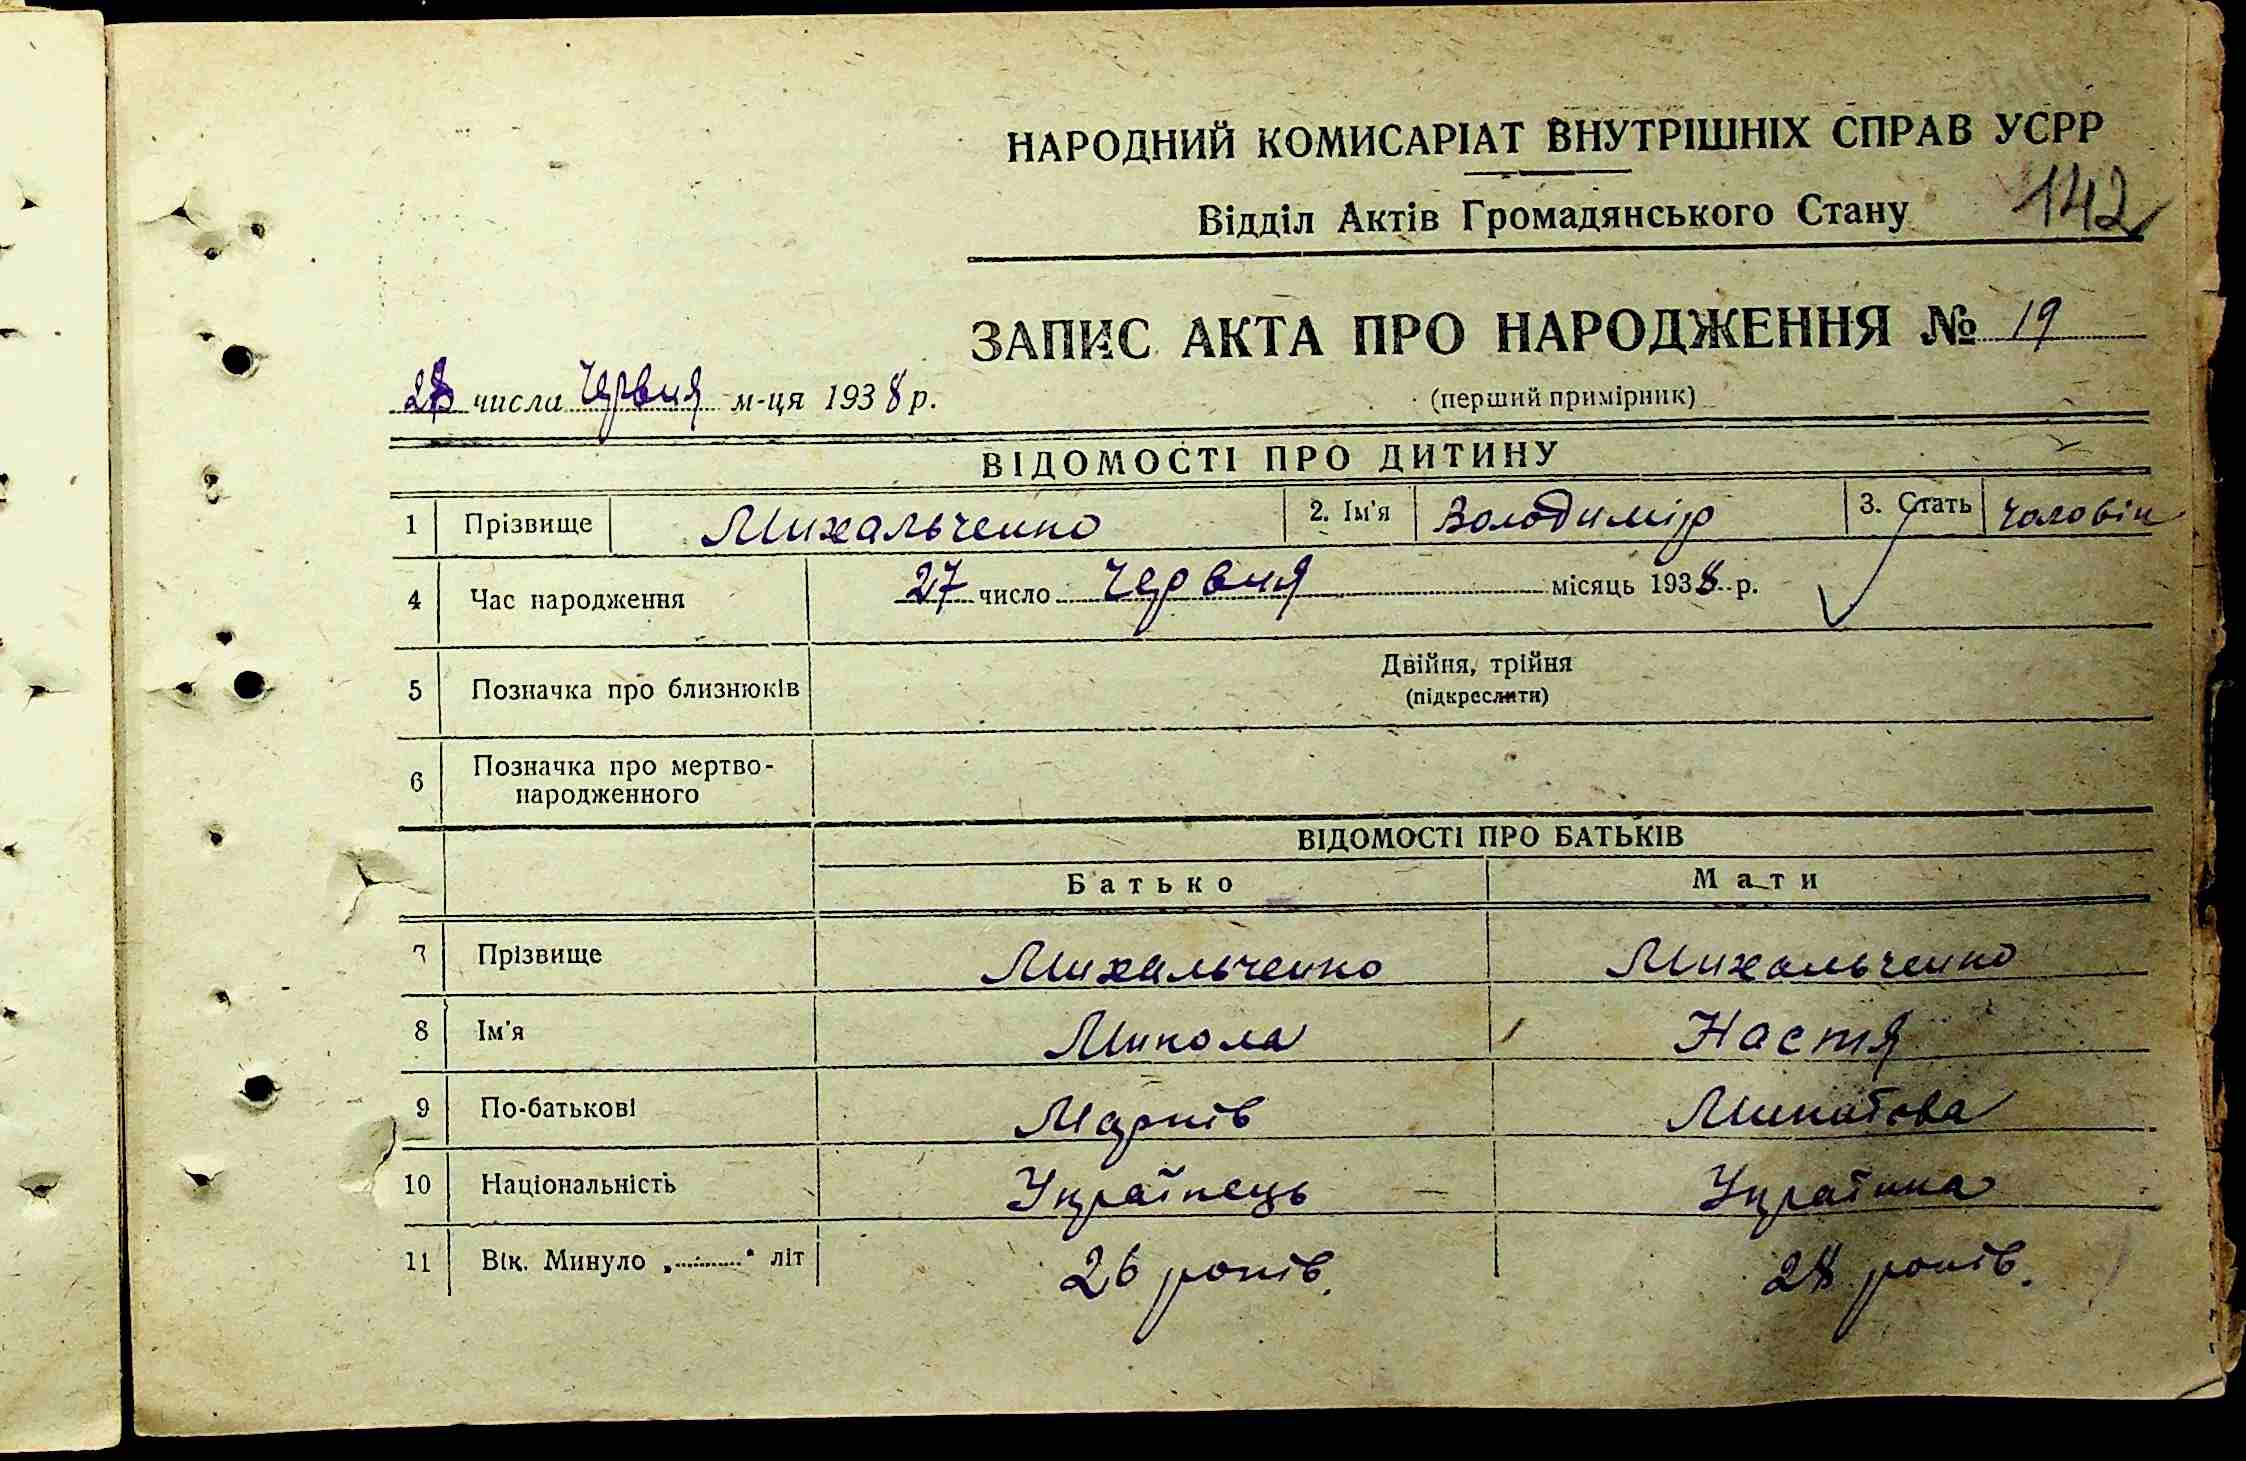 НАРОДНИЙ КОМИСАРІАТ ВНУТРІШНІХ СПРАВ УСРР
Відділ Актів Громадянського Стану 142
ЗАПИС АКТА ПРО НАРОДЖЕННЯ № 19
28 числа Червня м-ця 1938 р.
(перший примірник)
ВІДОМОСТІ ПРО ДИТИНУ
1 Прізвище Михальченко 2. Ім'я Володимір 3. Стать чоловік
4 Час народження 27 число Червня місяць 1938 р.
5 Позначка про близнюків Двійня, трійня
(підкреслити)
6 Позначка про мертво-
народженного
ВІДОМОСТІ ПРО БАТЬКІВ
Батько Мати
7 Прізвище Михальченко Михальченко
8 Ім'я Микола Настя
9 По-батькові Марків Микитова
10 Національність Українець Українка
11 Вік. Минуло „..........“ літ 26 років. 28 років.